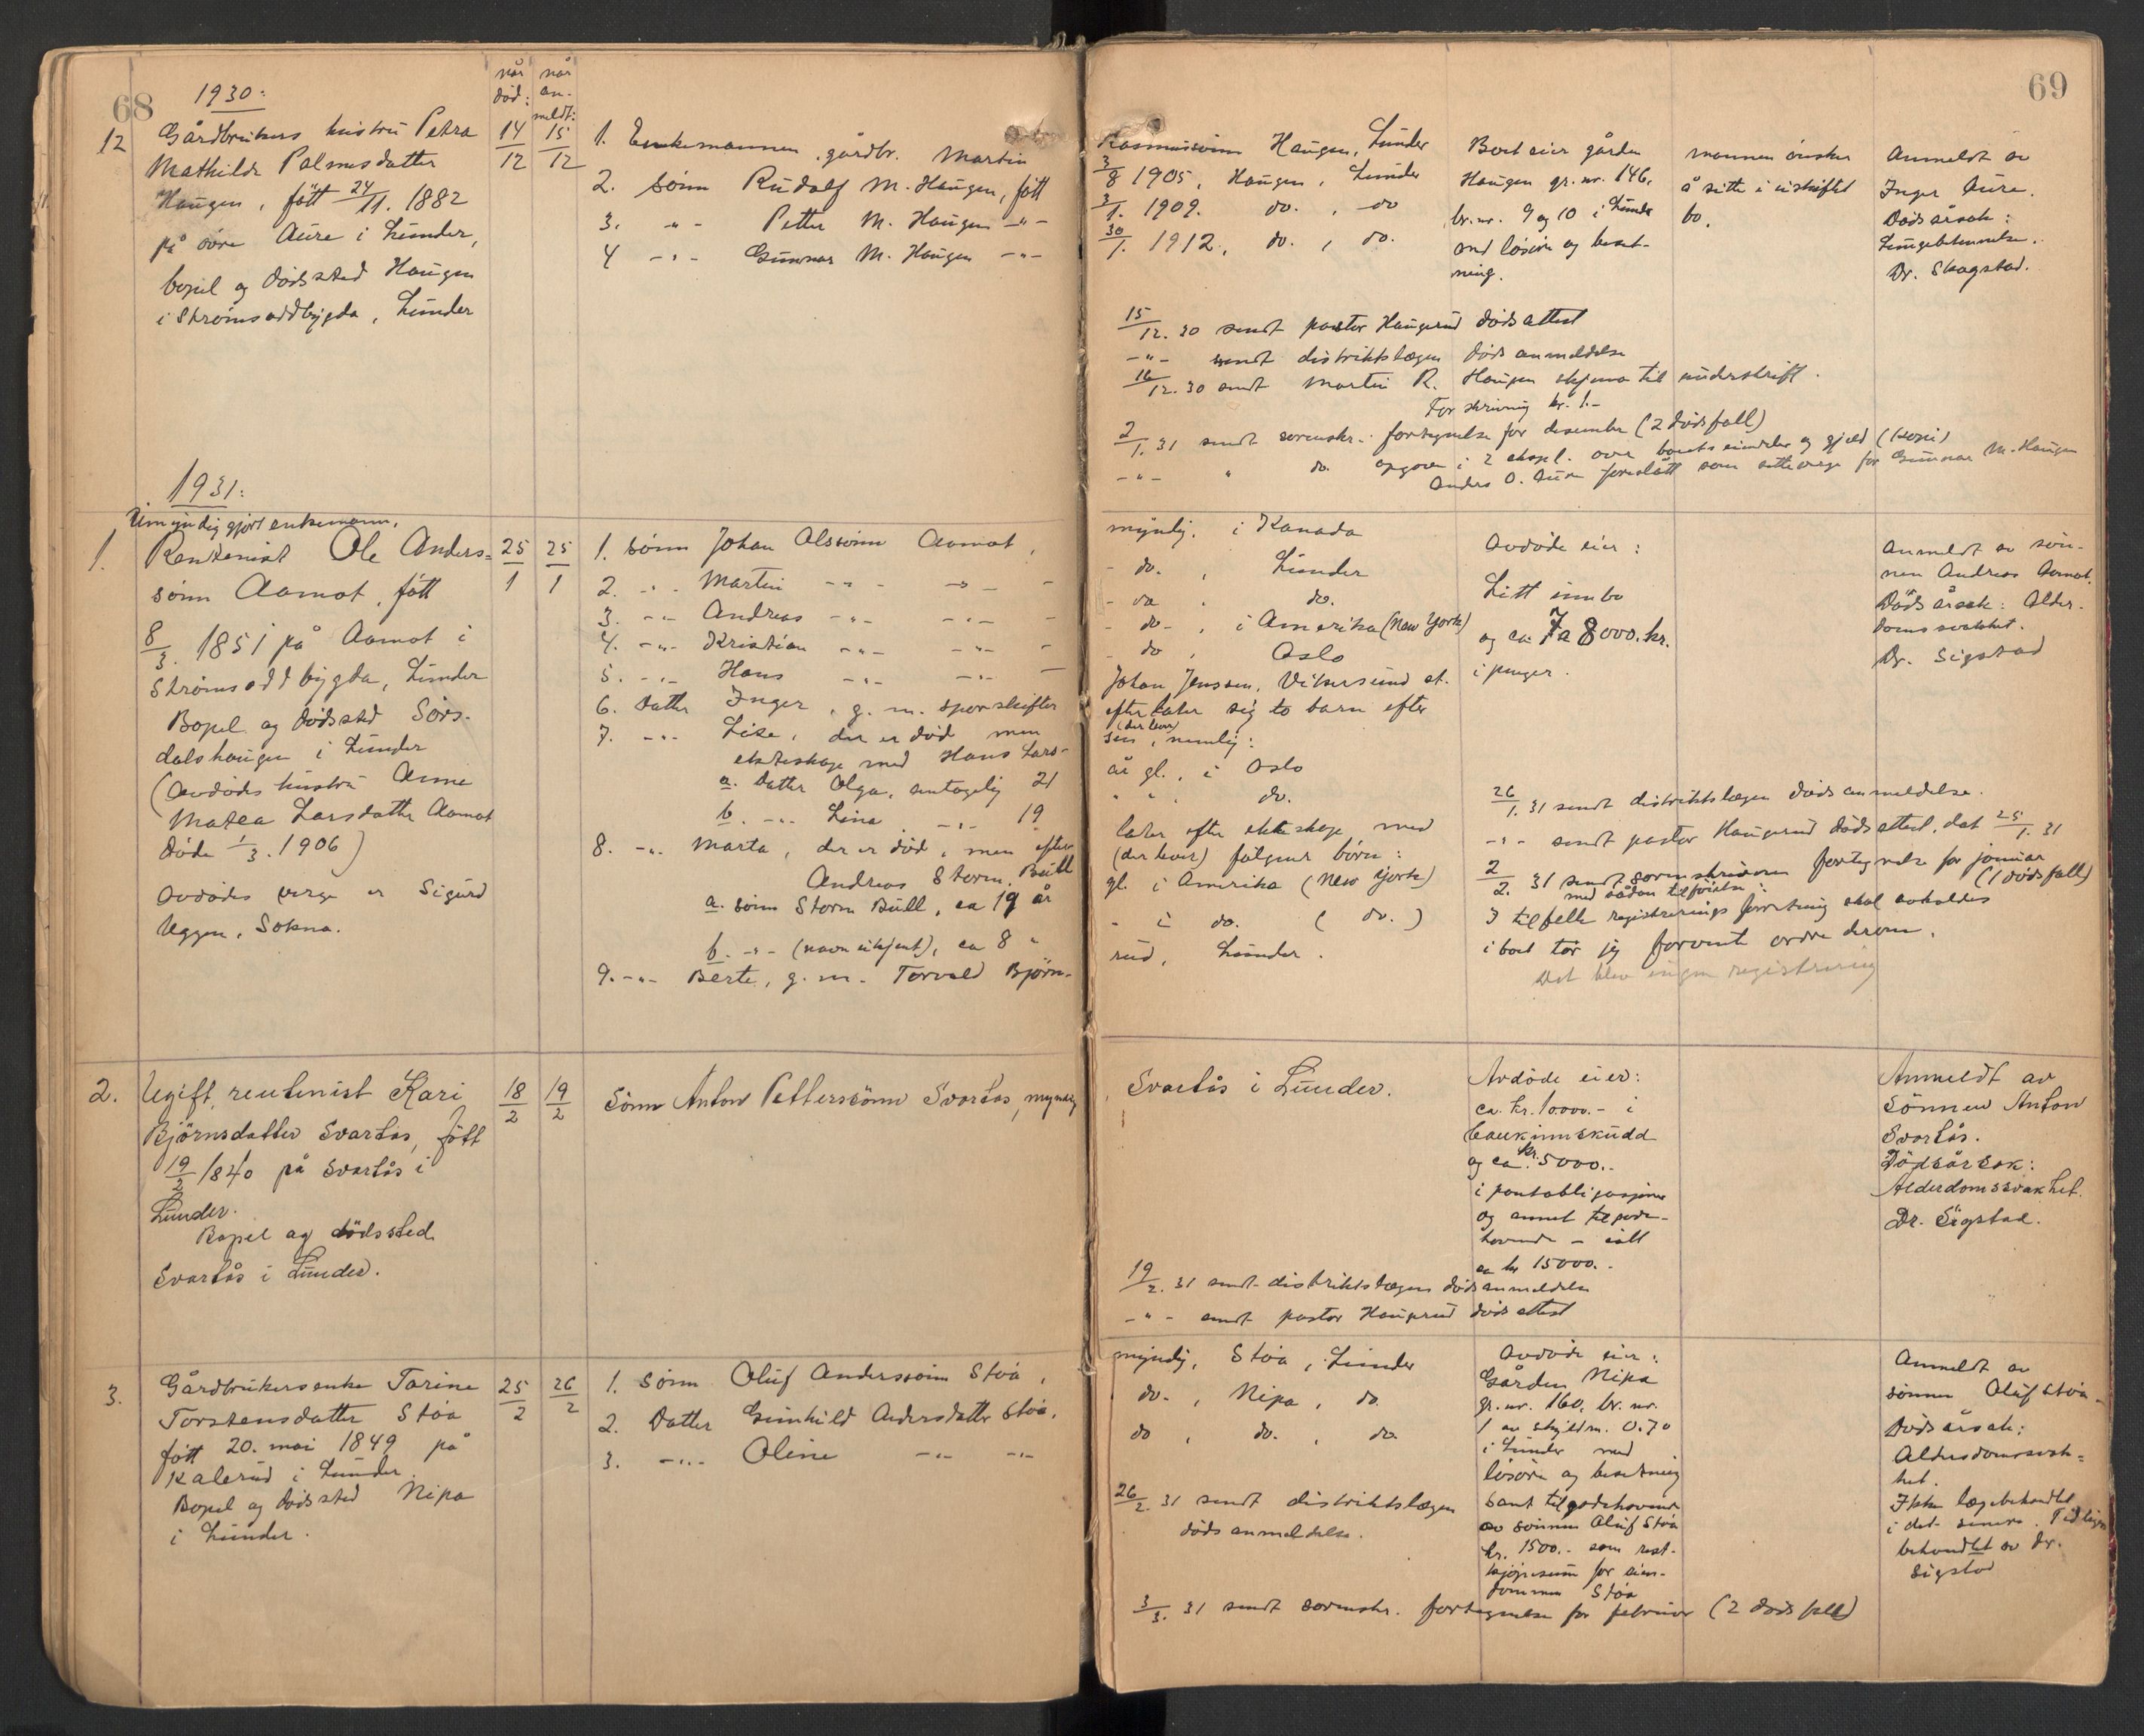 68
1930:
når død:
når an-meldt:
12
Gårdbrukers hustru Petra
Mathilde Palmesdatter
Haugen, født 24/11. 1882
på øvre Aure i Lunder,
bopel og dødssted Haugen
i Strømsoddbygda, Lunder
14/12
15/12
1. Enkemannen, gårdbr. Martin
2. Sønn Rudolf M. Haugen, født
3. -"- Petter M. Haugen -"-
4 -"- Gunnar M. Haugen -"-
1931:
Umyndiggjort enkemann,
1.
Rentenist Ole Anders-
sønn Aamot, født
8/3. 1851 på Aamot i
Strømsoddbygda, Lunder
Bopel og dødssted Sørs-
dalshaugen i Lunder
(Avdødes hustru Anne
Matea Larsdatter Aamot
døde 1/3. 1906)
Avdødes verge er Sigurd
Uggen, Sokna.
25/1
25/1
1. Sønn Johan Olssønn Aamot,
2. -"- Martin -"- -"- -
3. -"- Andreas -"- -"- -
4. -"- Kristian -"- -"- -
5. -"- Hans -"- -"- -
6. Datter Inger, g. m. sporskifter
7. -"- Lise, der er død men
ekteskap med Hans Lars-
a. Datter Olga, antagelig 21
b. -"- Lina -"- 19
8. -"- Marta, der er død, men efter
Andreas Storm Bull
a. sønn Storm Bull, ca 19 år
b. -"- (navn ukjent), ca 8 "
9. -"- Berte, g. m. Torvald Bjørn-
2.
Ugift, rentenist Kari
Björnsdatter Svartås, født
19/2 1840 på Svartås i
Lunder.
Bopel og dödssted
Svartås i Lunder.
18/2
19/2
Sönn Anton Petterssönn Svartås, myndig
3.
Gårdbrukersenke Torine
Torstensdatter Støa
født 20. mai 1849 på
Kalerud i Lunder.
Bopel og dødssted Nipa
i Lunder.
25/2
26/2
1. Sønn Oluf Anderssønn Støa,
2. Datter Gunhild Andersdatter Støa,
3. -"- Oline -"- -"-
69
Rasmussønn Haugen, Lunder
3/8 1905, Haugen, Lunder
3/1. 1909. do. , do
30/1. 1912, do. , do.
Boet eier gården
Haugen gr. nr. 146,
br. nr. 9 og 10 i Lunder
med løsøre og beset-
ning.
mannen ønsker
å sitte i uskiftet
bo.
Anmeldt av
Inger Aure.
Dødsårsak:
Lungebetennelse.
Dr. Skagstad.
15/12. 30 sendt pastor Haugerud dødsattest
-"- sendt distriktslægen dødsanmeldelse
16/12. 30 sendt Martin R. Haugen skjema til underskrift.
For skrivning kr. 1.-
2/1. 31 sendt sorenskr. fortegnelse for desember (2 dødsfall)
-"- " do. opgave i 2 eksepl. over boets eiendeler og gjeld (kopi)
Anders O. Aure foreslått som setteverge for Gunnar M. Haugen
myndig, i Kanada
- do. , Lunder
- do , do.
- do- , i Amerika (New York)
- do , Oslo
Johan Jenssen, Vikersund st.
efterlater sig to barn efter
sen (der lever), nemlig:
år gl., i Oslo
" " , do.
later efter ekteskap med
(der lever) følgende børn:
gl. i Amerika (New York)
- i do. ( do. )
rud, Lunder.
Avdøde eier:
Litt innbo
og ca. 7 a 8000. kr.
i penger.
Anmeldt av søn-
nen Andreas Aamot.
Dødsårsak: Alder-
domssvakhet.
Dr. Sigstad
26/1. 31 sendt distriktslægen dødsanmeldelse.
-"- sendt pastor Haugerud dødsattest, dat 25/1. 31
2/2. 31 sendt sorenskriveren fortegnelse for januar (1 dødsfall)
med sådan tilføielse:
I tilfelle registreringsforretning skal avholdes
i boet tør jeg forvente ordre derom.
Det blev ingen registrering
Svartås i Lunder.
Avdöde eier:
ca. kr. 10000.- i
bankinnskudd
og ca. kr. 5000.-
i pantobligasjoner
og annet tilgode-
havende - ialt
ca kr 15000.-
Anmeldt av
Sönnen Anton
Svartås.
Dödsårsak:
Alderdomssvakhet.
Dr. Sigstad.
19/2. 31 sendt distriktslægen dødsanmeldelse
-"- sendt pastor Haugerud dødsattest
myndig, Støa, Lunder
do. , Nipa, do.
do , do. , do.
Avdøde eier:
Gården Nipa
gr. nr. 160, br. nr.
1 av skyldm. 0.70
i Lunder med
løsøre og besetning
samt tilgodehavende
av sønnen Oluf Støa
kr. 1500.- som rest-
kjøpesum for eien-
dommen Støa
Anmeldt av
sønnen Oluf Støa
Dødsårsak:
Alderdomssvak-
het.
Ikke lægebehandlet
i det senere. Tidligere
behandlet av dr.
Sigstad
26/2. 31 sendt distriktslægen
dødsanmeldelse.
3/3. 31 sendt sorenskr. fortegnelse for februar (2 dødsfall)